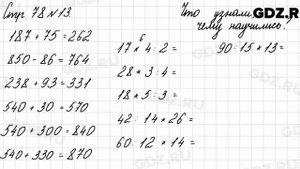 Стр. 78 № 13.
187 + 75 = 262
850 - 86 = 764
238 + 93 = 331
540 + 30 = 570
540 + 300 = 840
540 + 330 = 870
Что узнали.
чему научились?
6
17 * 4 : 2 =
28 * 3 : 4 =
18 * 5 : 3 =
42 : 14 * 26 =
60 : 12 * 14 =
90 : 15 * 13 =
GDZ.RU